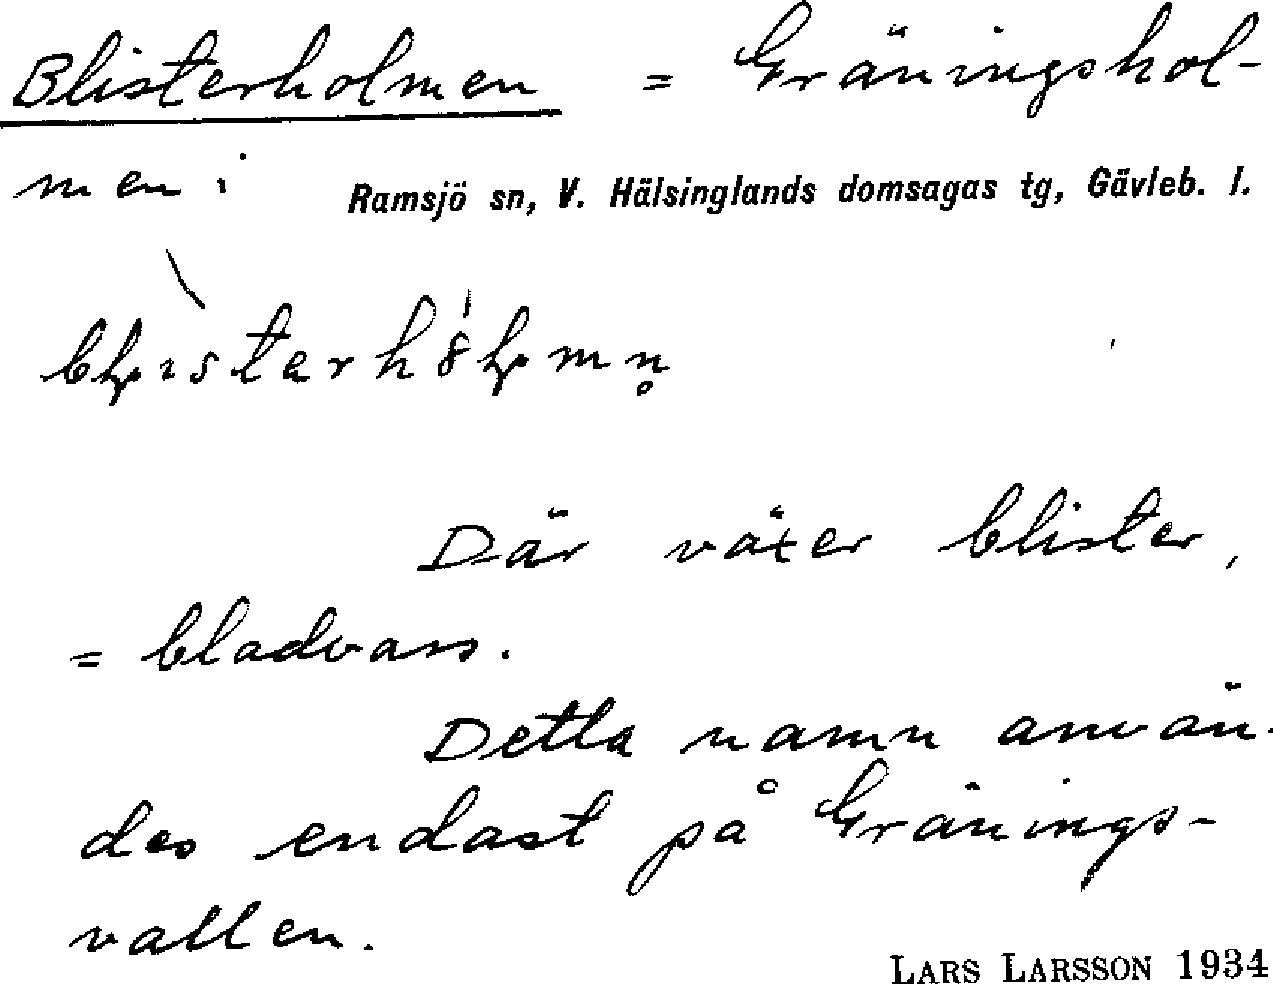 Blisterholmen = Gräningshol-
men i Ramsjö sn, V. Hälsinglands domsagas tg, Gävleb. l.
Där växer blister,
= bladvass.
Detta namn använ-
des endast på Gränings-
vallen.
LARS LARSSON 1934